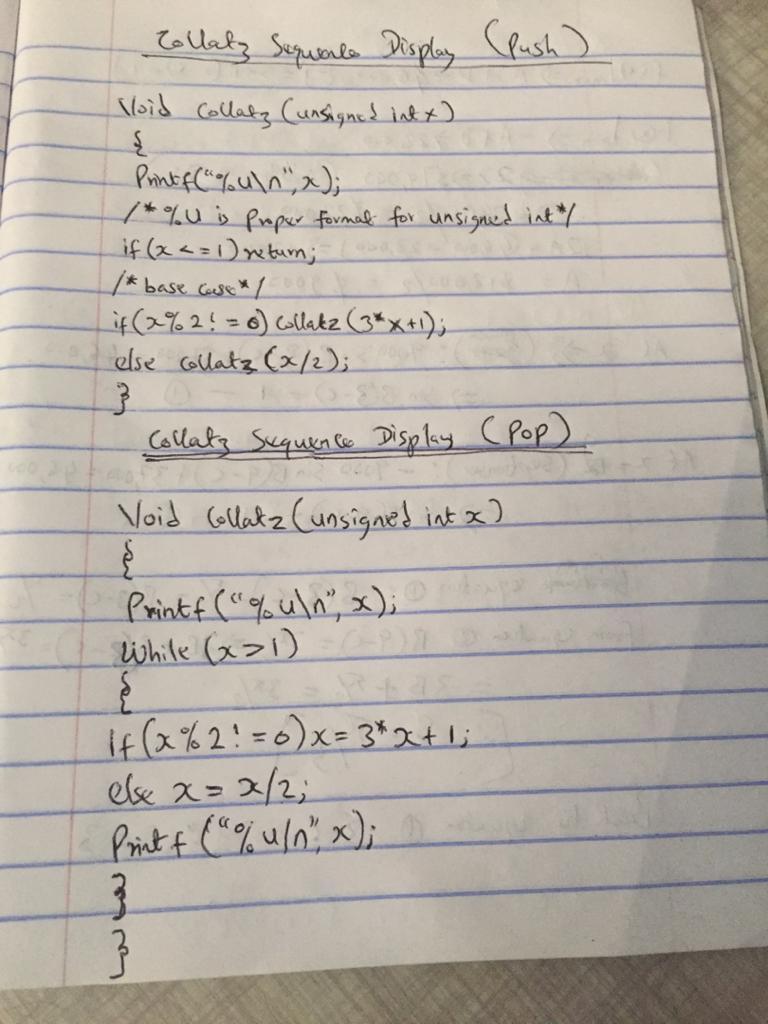 Collatz Sequence Display (Push)
Void Collatz (unsigned int x)
{
Printf("%u\n", x);
/* %u is Proper format for unsigned int*/
if (x <= 1) return;
/* base case */
if (x%2! = 0) Collatz (3* x+1);
else collatz (x/2);
}
Collatz Sequence Display (Pop)
Void Collatz (unsigned int x)
{
Printf ("%u\n", x);
While (x>1)
{
If (x%2! = 0) x = 3* x+1;
else x = x/2;
Printf ("%u/n", x);
}
}